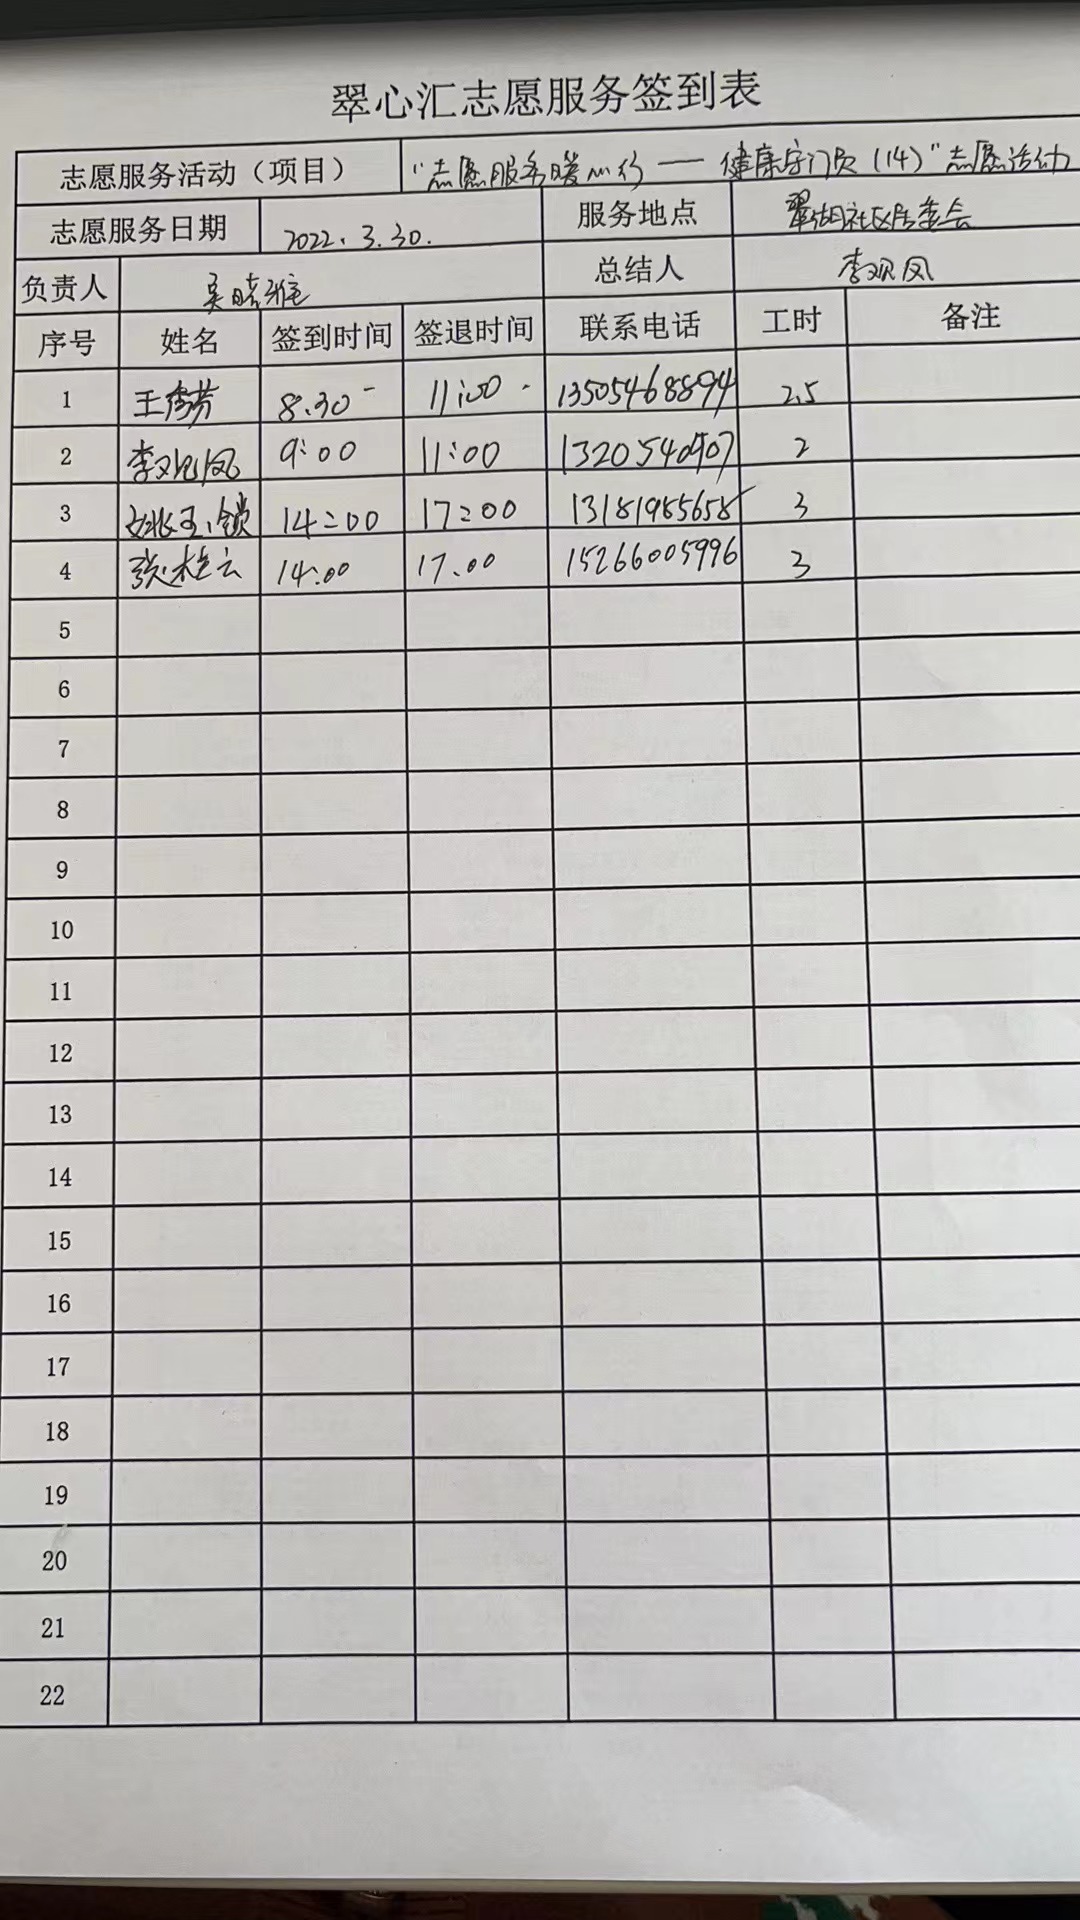 翠心汇志愿服务签到表
志愿服务活动（项目） "志愿服务暖心行——健康守门员（14）"志愿活动
志愿服务日期 2022.3.30. 服务地点 翠湖社区居委会
负责人 吴晓雅 总结人 李观凤
序号 姓名 签到时间 签退时间 联系电话 工时 备注
1 王秀芳 8.30 11:00 13505468894 2.5
2 李观凤 9:00 11:00 13205540907 2
3 姚玉锁 14:00 17:00 13181985658 3
4 张桂云 14:00 17.00 15266005996 3
5
6
7
8
9
10
11
12
13
14
15
16
17
18
19
20
21
22